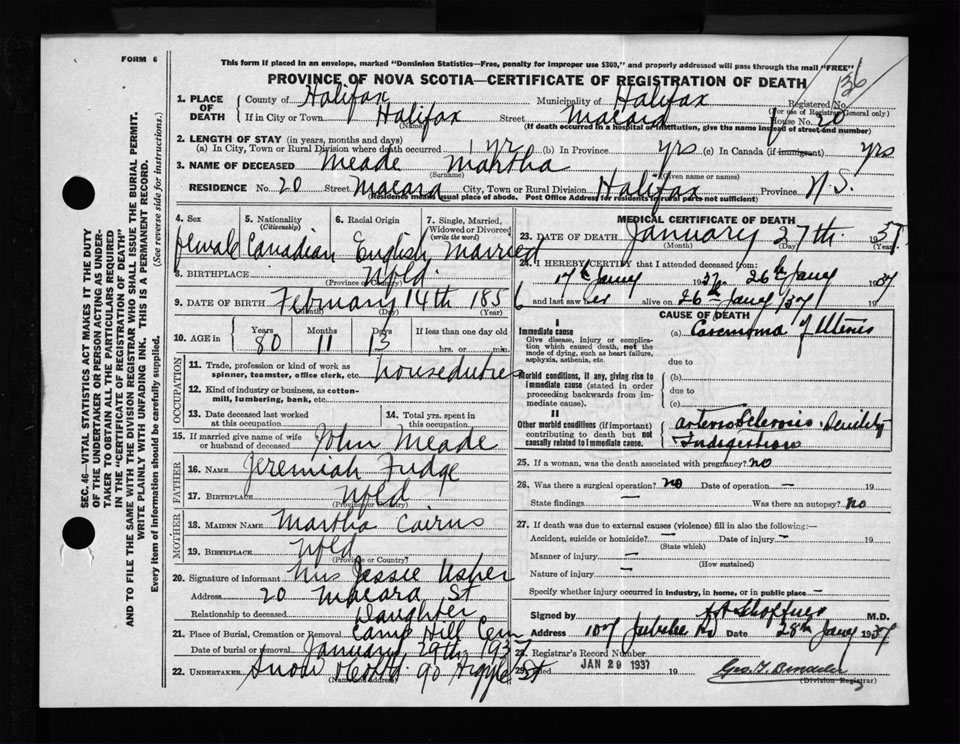 FORM 6
This form if placed in an envelope, marked "Dominion Statistics—Free, penalty for improper use $300," and properly addressed will pass through the mail "FREE"
136
PROVINCE OF NOVA SCOTIA—CERTIFICATE OF REGISTRATION OF DEATH
1. PLACE OF DEATH
County of Halifax Municipality of Halifax Registered No.
(For use of Registrar General only)
If in City or Town Halifax Street Macara House No. 20
(Name) (If death occurred in a hospital or institution, give the name instead of street and number)
2. LENGTH OF STAY (in years, months and days)
(a) In City, Town or Rural Division where death occurred 1 yr (b) In Province yrs (c) In Canada (if immigrant) yrs
3. NAME OF DECEASED Meade Martha
(Surname) (Given name or names)
RESIDENCE No. 20 Street Macara City, Town or Rural Division Halifax Province N.S.
(Residence means usual place of abode. Post Office Address for residents in rural parts not sufficient)
4. Sex female
5. Nationality (Citizenship) Canadian
6. Racial Origin English
7. Single, Married, Widowed or Divorced (write the word) Married
8. BIRTHPLACE Nfld.
(Province or Country)
9. DATE OF BIRTH February 14th 1856
(Month) (Day) (Year)
10. AGE in Years 80 Months 11 Days 13 If less than one day old hrs. or min.
OCCUPATION
11. Trade, profession or kind of work as spinner, teamster, office clerk, etc. houseduties
12. Kind of industry or business, as cotton-mill, lumbering, bank, etc.
13. Date deceased last worked at this occupation
14. Total yrs. spent in this occupation
15. If married give name of wife or husband of deceased John Meade
FATHER
16. NAME Jeremiah Fudge
17. BIRTHPLACE Nfld
(Province or Country)
MOTHER
18. MAIDEN NAME Martha Cairns
19. BIRTHPLACE Nfld
(Province or Country)
20. Signature of informant Mrs Jessie
Address 20 Macara St
Relationship to deceased Daughter
21. Place of Burial, Cremation or Removal Camp Hill Cem
Date of burial or removal January 29th 1937
22. UNDERTAKER Snow 90 Argyle St
(Name and address)
MEDICAL CERTIFICATE OF DEATH
23. DATE OF DEATH January 27th 1937
(Month) (Day) (Year)
24. I HEREBY CERTIFY that I attended deceased from:
17th Jany 1937 to 26th Jany 1937
and last saw her alive on 26th Jany 1937
CAUSE OF DEATH
I
Immediate cause
Give disease, injury or complication which caused death, not the mode of dying, such as heart failure, asphyxia, asthenia, etc.
(a) Carcinoma of Uterus
due to
Morbid conditions, if any, giving rise to immediate cause (stated in order proceeding backwards from immediate cause).
(b)
due to
(c)
II
Other morbid conditions (if important) contributing to death but not causally related to immediate cause.
Arterio Sclerosis. Senility
Indigestion
25. If a woman, was the death associated with pregnancy? no
26. Was there a surgical operation? no Date of operation — 19
State findings — Was there an autopsy? no
27. If death was due to external causes (violence) fill in also the following:—
Accident, suicide or homicide? — Date of injury — 19
(State which)
Manner of injury —
(How sustained)
Nature of injury —
Specify whether injury occurred in industry, in home, or in public place —
Signed by M.D.
Address 107 Jubilee Rd Date 28th Jany 1937
28. Registrar's Record Number
29. JAN 29 1937 19
(Division Registrar)
SEC. 46—VITAL STATISTICS ACT MAKES IT THE DUTY OF THE UNDERTAKER OR PERSON ACTING AS UNDERTAKER TO OBTAIN ALL THE PARTICULARS REQUIRED IN THE "CERTIFICATE OF REGISTRATION OF DEATH" AND TO FILE THE SAME WITH THE DIVISION REGISTRAR WHO SHALL ISSUE THE BURIAL PERMIT.
WRITE PLAINLY WITH UNFADING INK. THIS IS A PERMANENT RECORD.
Every item of information should be carefully supplied. (See reverse side for instructions.)